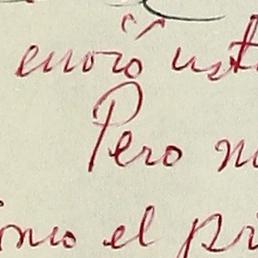 envió ust
Pero n
imo el pri